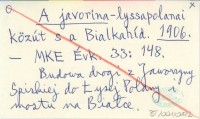 A javorina-lyssapolanai
közút s a Bialkahíd. 1906.
— MKE Évk. 33: 148.
Budowa drogi z Jaworzyny
Spiskiej do Łysej Polany i
mostu na Białce.